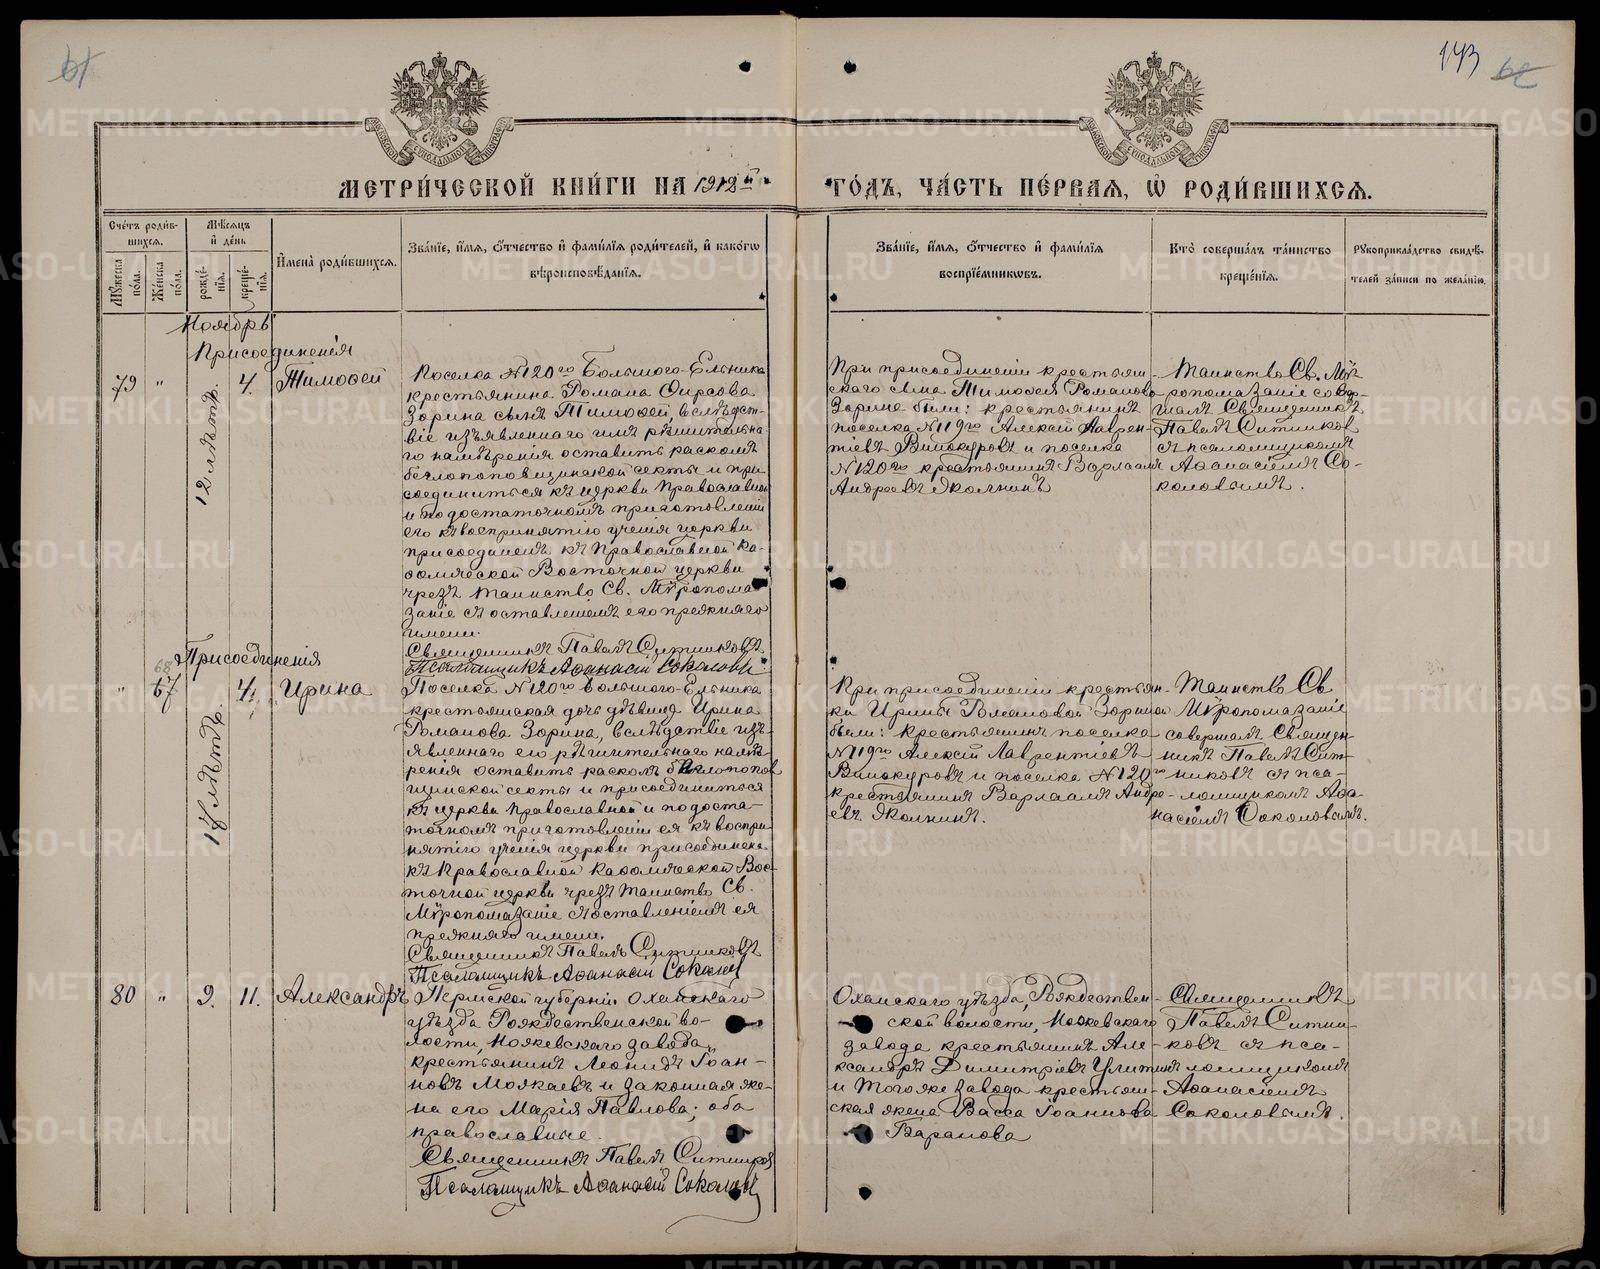 61
143
62
МЕТРИ́ЧЕСКОЙ КНИ́ГИ НА 1912й
ГО́ДЪ, ЧА́СТЬ ПЕ́РВАЯ, Ѡ҆ РОДИ́ВШИХСЯ.
Сче́тъ роди́в-
шихся.
Мѣ́сяцъ
и҆ де́нь
Мꙋ́жеска
по́ла.
Же́нска
по́ла.
рожде́-
нїя.
креще́-
нїя.
И҆мена̀ роди́вшихся.
Зва́нїе, и҆́мя, ѻ҆́тчество и҆ фами́лїя роди́телей, и҆ како́гѡ
вѣроисповѣ́данїя.
Зва́нїе, и҆́мя, ѻ҆́тчество и҆ фами́лїя
воспрїе́мникѡвъ.
Кто̀ соверша́лъ та́инство
креще́нїя.
Рꙋкоприкла́дство свидѣ́-
телей за́писи по жела́нїю.
Ноябрь
Присоединенія
79 " 12 лѣтъ. 4. Тимоѳей
Поселка №120го Большого-Ельника
крестьянина Романа Фирсова
Зорина сынъ Тимоѳей, вслѣдст-
віе изъявленнаго имъ рѣшительна-
го намѣренія оставить расколъ
бѣглопоповщинской секты и при-
соединиться къ церкви Православной
и по достаточномъ приготовленіи
его къ воспринятію ученія церкви
присоединенъ къ Православной Ка-
ѳолической Восточной церкви
чрезъ таинство Св. Мѵропома-
заніе съ оставленіемъ его прежняго
имени.
Священникъ Павелъ Ситниковъ
Псаломщикъ Аѳанасій Соколовъ
При присоединеніи крестьян-
скаго сына Тимоѳея Романова
Зорина были: крестьянинъ
поселка №119го Алексій Лаврен-
тіевъ Винокуровъ и поселка
№120го крестьянинъ Варлаамъ
Андреевъ Яколнинъ
Таинство Св. Мѵ-
ропомазаніе совер-
шалъ Священникъ
Павелъ Ситников
съ псаломщикомъ
Аѳанасіемъ Со-
коловымъ.
Присоединенія
68
" 67 18 лѣтъ. 4. Ирина
Поселка №120го Большого-Ельника
крестьянская дочь дѣвица Ирина
Романова Зорина, вслѣдствіе изъ-
явленнаго ею рѣшительнаго намѣ-
ренія оставить расколъ бѣглопопов-
щинской секты и присоединиться
къ церкви Православной и по доста-
точномъ приготовленіи ея къ воспри-
нятію ученія церкви присоединена
къ Православной Каѳолической Вос-
точной церкви чрезъ таинство Св.
Мѵропомазаніе съ оставленіемъ ея
прежняго имени.
Священникъ Павелъ Ситниковъ
Псаломщикъ Аѳанасій Соколовъ
При присоединеніи крестьян-
ки Ирины Романовой Зориной
были: крестьянинъ поселка
№119го Алексій Лаврентіевъ
Винокуровъ и поселка №120го
крестьянинъ Варлаамъ Андре-
евъ Яколнинъ.
Таинство Св
Мѵропомазаніе
совершалъ Священ-
никъ Павелъ Сит-
никовъ съ пса-
ломщикомъ Аѳа-
насіемъ Соколовымъ.
80 " 9. 11. Александръ
Пермской губерніи Оханскаго
уѣзда Рождественской во-
лости, Ножевскаго завода,
крестьянинъ Леонидъ Іоан-
новъ Можаевъ и законная же-
на его Марія Павлова; оба
православные.
Священникъ Павелъ Ситников
Псаломщикъ Аѳанасій Соколовъ
Оханскаго уѣзда, Рождествен-
ской волости, Ножевскаго
завода крестьянинъ Але-
ксандръ Димитріевъ Улитинъ
и того же завода крестьян-
ская жена Васса Іоаннова
Варанова
Священникъ
Павелъ Ситни-
ковъ съ пса-
ломщикомъ
Аѳанасіемъ
Соколовымъ.
METRIKI.GASO-URAL.RU